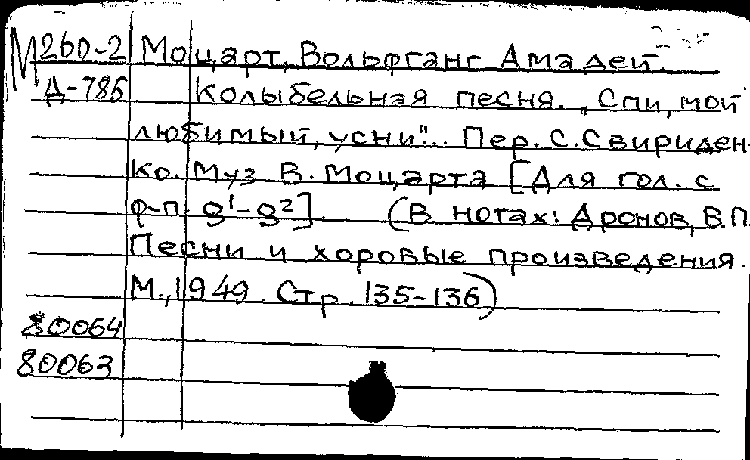 М260-2 Моцарт, Вольфганг Амадей.
Д-786 Колыбельная песня. „Спи, мой
любимый, усни". Пер. С. Свириден-
ко. Муз В. Моцарта [Для гол. с
ф-п. g¹-g²] (В нотах: Дронов, В.П.
Песни и хоровые произведения.
М., 1949. Стр. 135-136)
80064
80063